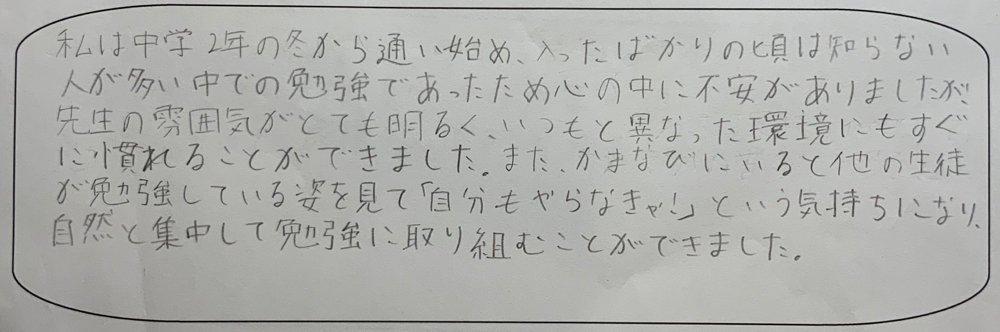 私は中学2年の冬から通い始め、入ったばかりの頃は知らない
人が多い中での勉強であったため心の中に不安がありましたが、
先生の雰囲気がとても明るく、いつもと異なった環境にもすぐ
に慣れることができました。また、かまなびにいると他の生徒
が勉強している姿を見て「自分もやらなきゃ!」という気持ちになり、
自然と集中して勉強に取り組むことができました。